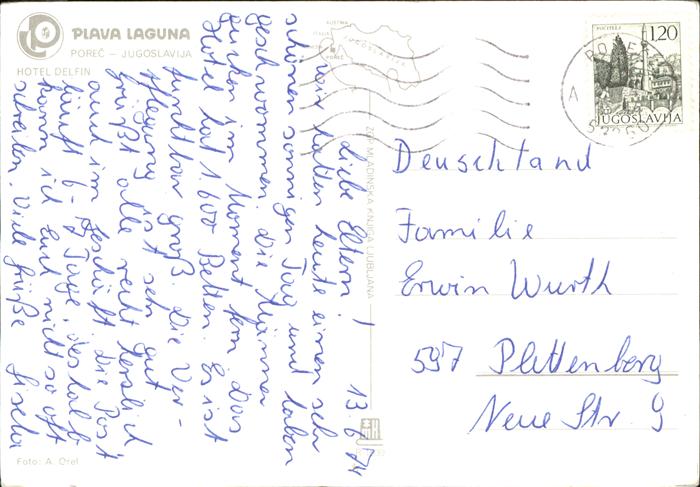 PLAVA LAGUNA
POREČ – JUGOSLAVIJA
HOTEL DELFIN
AUSTRIA
ITALIA
JUGOSLAVIJA
POREČ
POČITELJ
1,20
JUGOSLAVIJA
A
52360
13.6.74
Liebe Eltern!
wir hatten heute einen sehr
schönen sonnigen Tag und haben
geschwommen. Die Männer
gucken im Moment fern. Das
Hotel hat 1600 Betten. Es ist
furchtbar groß. Die Ver-
pflegung ist sehr gut
Grüßt alle recht herzlich
auch im Geschäft. Die Post
läuft 6-8 Tage, deshalb
kann ich Euch nicht so oft
schreiben. Viele Grüße Gisela
ZGP MLADINSKA KNJIGA LJUBLJANA
Deuschland
Familie
Erwin Wurth
597 Plettenberg
Neue Str. 9
Foto: A. Orel